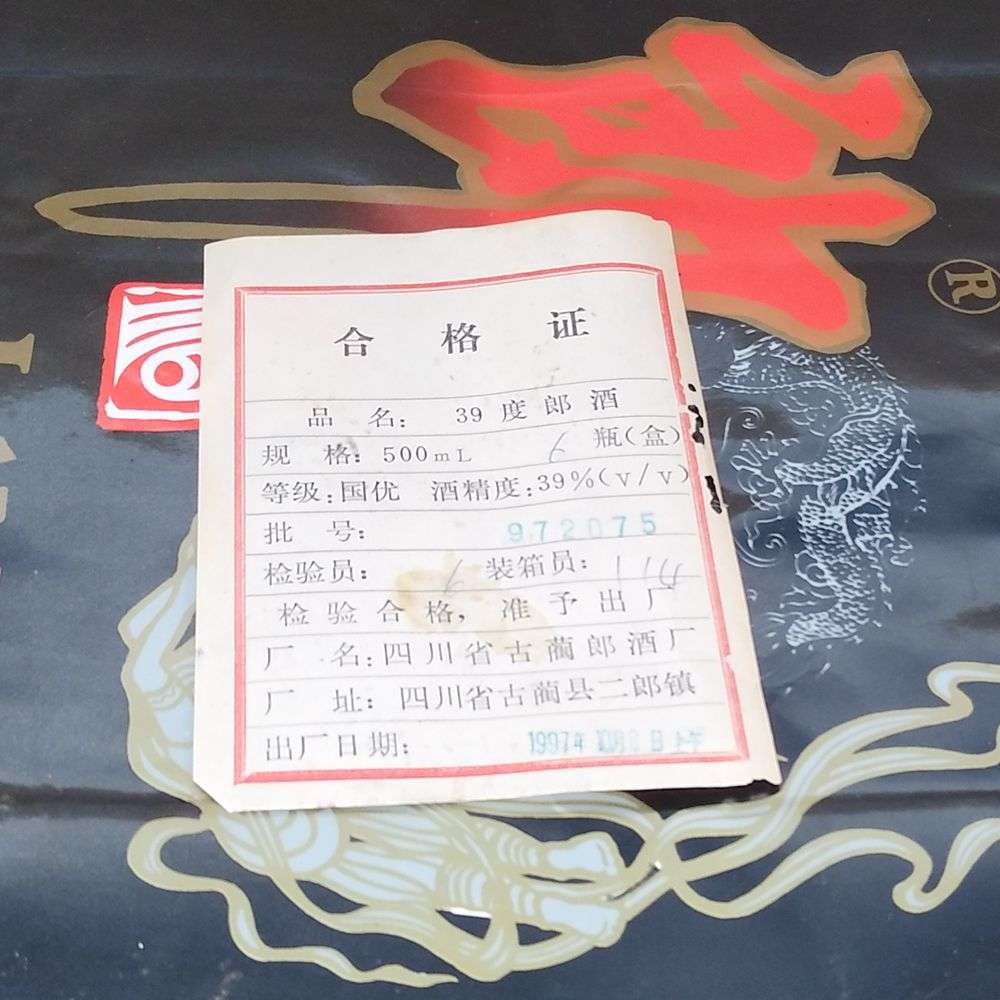 ®
合格证
品 名: 39度郎酒
规 格: 500mL 瓶(盒)
等级:国优 酒精度:39%(v/v)
批 号: 972075
检验员: 装箱员:
检验合格,准予出厂
厂 名:四川省古蔺郎酒厂
厂 址: 四川省古蔺县二郎镇
出厂日期: 1997年10月 日上午